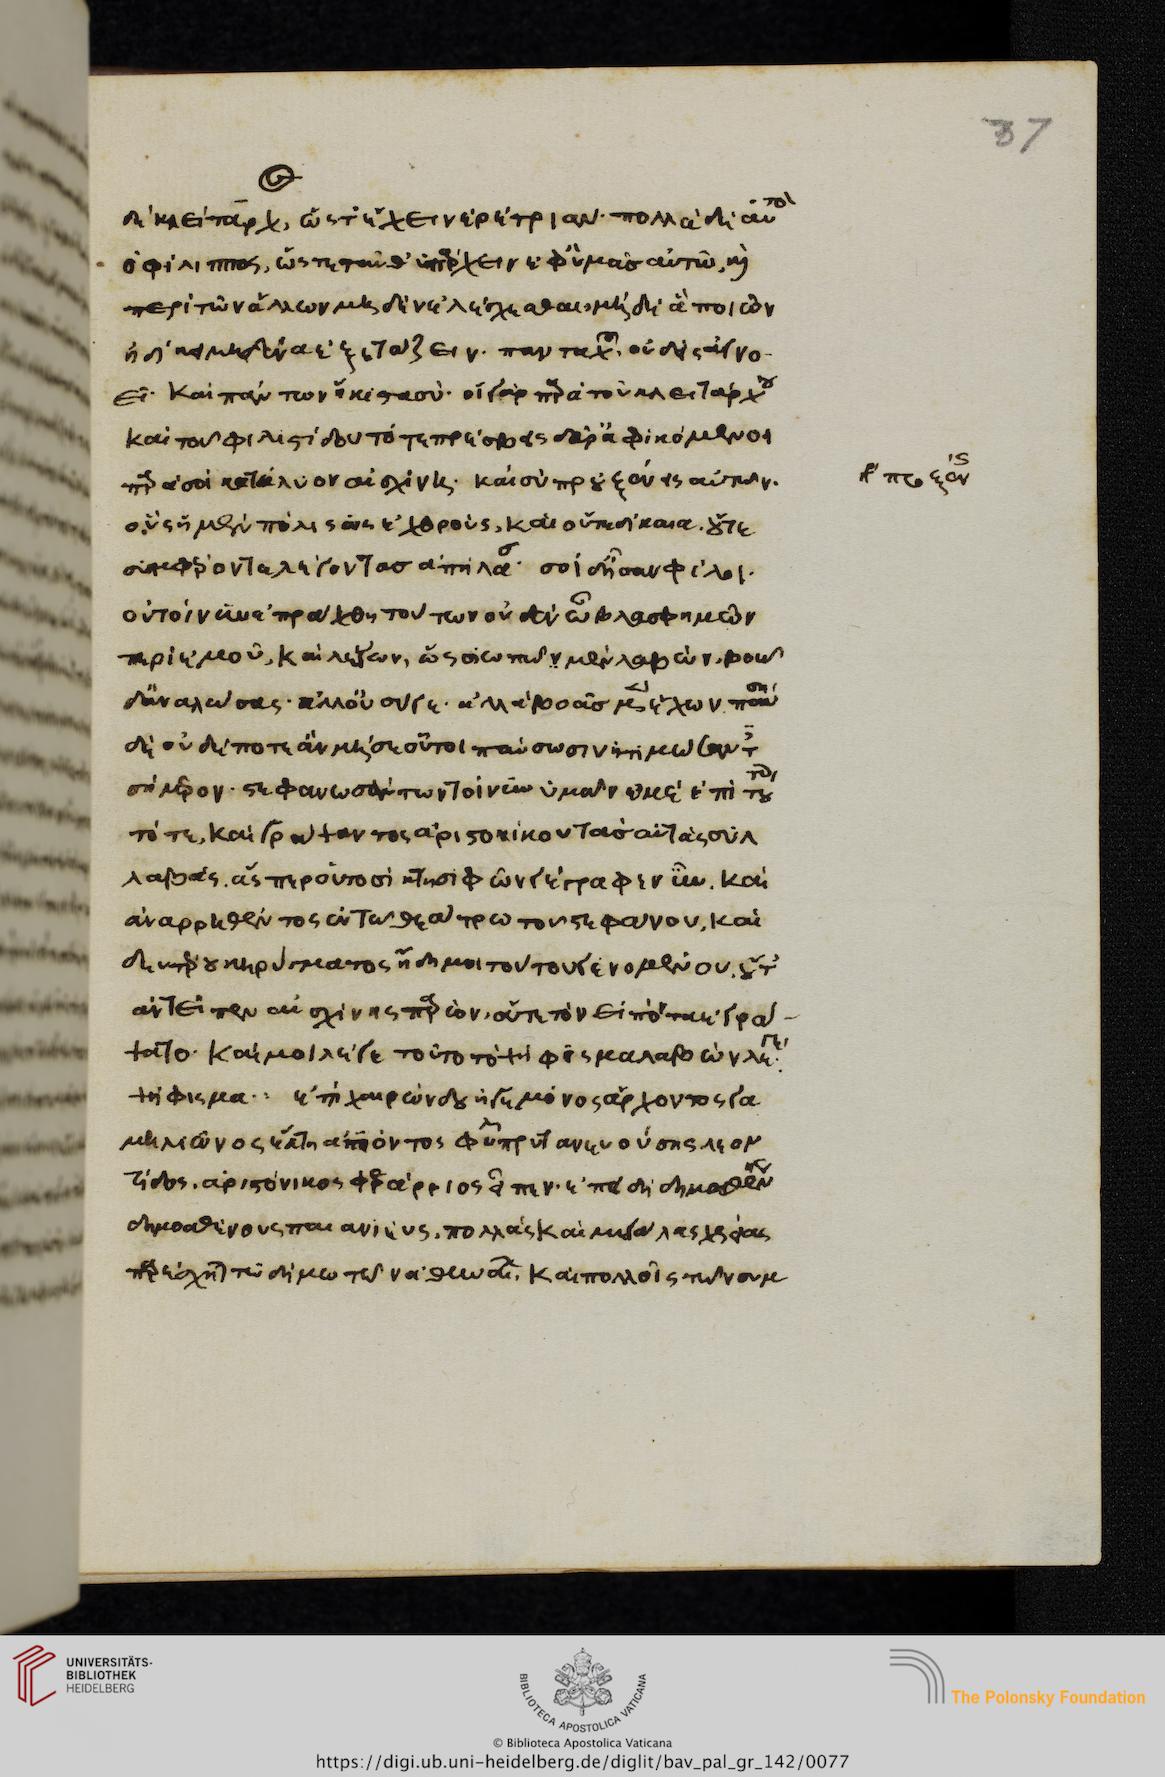 37
δὲ κλείταρχ, ὥστ' ἔχειν ἐρέτριαν· πολλὰ δὲ αὐτὸ
ὁ φίλιππος, ὥστε ταῦθ' ὑπάρχειν ἐφ' ὑμᾶς αὐτῶ, καὶ
περὶ τῶν ἄλλων μηδὲν ἐλέγχεσθαι· μηδὲ ἃ ποιῶν
ἠδίκει μηδένα ἐξετάζειν· πανταχοῦ· οὐδεὶς ἀγνο-
εῖ· καὶ πάντων ἥκιστα σύ· οἱ γὰρ παρὰ τοῦ κλειτάρχου
καὶ τοῦ φιλιστίδου τότε πρέσβεις δεῦρ' ἀφικόμενοι
παρὰ σοὶ κατέλυον αἰσχίνη· καὶ σὺ προὐξένεις αὐτῶν·
οὓς ἡ μὲν πόλις ὡς ἐχθροὺς, καὶ οὔτε δίκαια, οὔτε
συμφέροντα λέγοντας ἀπήλασ· σοὶ δ' ἦσαν φίλοι·
οὐ τοίνυν ἐπράχθη τούτων οὐδὲν ὦ βλασφημῶν
περὶ ἐμοῦ, καὶ λέγων, ὡς σιωπῶ μὲν λαβών, βοῶ
δ' ἀναλώσας· ἀλλ' οὐ σύ γε· ἀλλὰ βοᾶς μὲν ἔχων παύσῃ
δὲ οὐδέποτε ἂν μή σε οὗτοι παύσωσιν ἀτιμώσαντ
σήμερον· στεφανωσάντων τοίνυν ὑμῶν ἐμὲ ἐπὶ τούτοις
τότε, καὶ γράψαντος ἀριστονίκου τὰς αὐτὰς συλ
λαβὰς, ἅσπερ οὑτοσὶ κτησιφῶν γέγραφεν νῦν, καὶ
ἀναρρηθέντος ἐν τῶ θεάτρω τοῦ στεφάνου, καὶ
δευτέρου κηρύγματος ἤδη μοι τούτου γενομένου, οὔτ'
ἀντεῖπεν αἰσχίνης παρών, οὔτε τὸν εἰπόντα ἐγρά-
ψατο· καί μοι λέγε τοῦτο τὸ ψήφισμα λαβών λέγε
ψήφισμα·: ἐπὶ χαιρώνδου ἡγεμόνος ἄρχοντος γα
μηλιῶνος ἕκτη ἀπιόντος φυλ πρυτανευούσης λεον
τίδος, ἀριστόνικος φρεάρριος εἶπεν· ἐπειδὴ δημοσθέν
δημοσθένους παιανιεὺς, πολλὰς καὶ μεγάλας χρείας
παρέσχηται τῶ δήμω τῶν ἀθηναί, καὶ πολλοῖς τῶν συμ
UNIVERSITÄTS-
BIBLIOTHEK
HEIDELBERG
BIBLIOTECA APOSTOLICA VATICANA
The Polonsky Foundation
© Biblioteca Apostolica Vaticana
https://digi.ub.uni-heidelberg.de/diglit/bav_pal_gr_142/0077